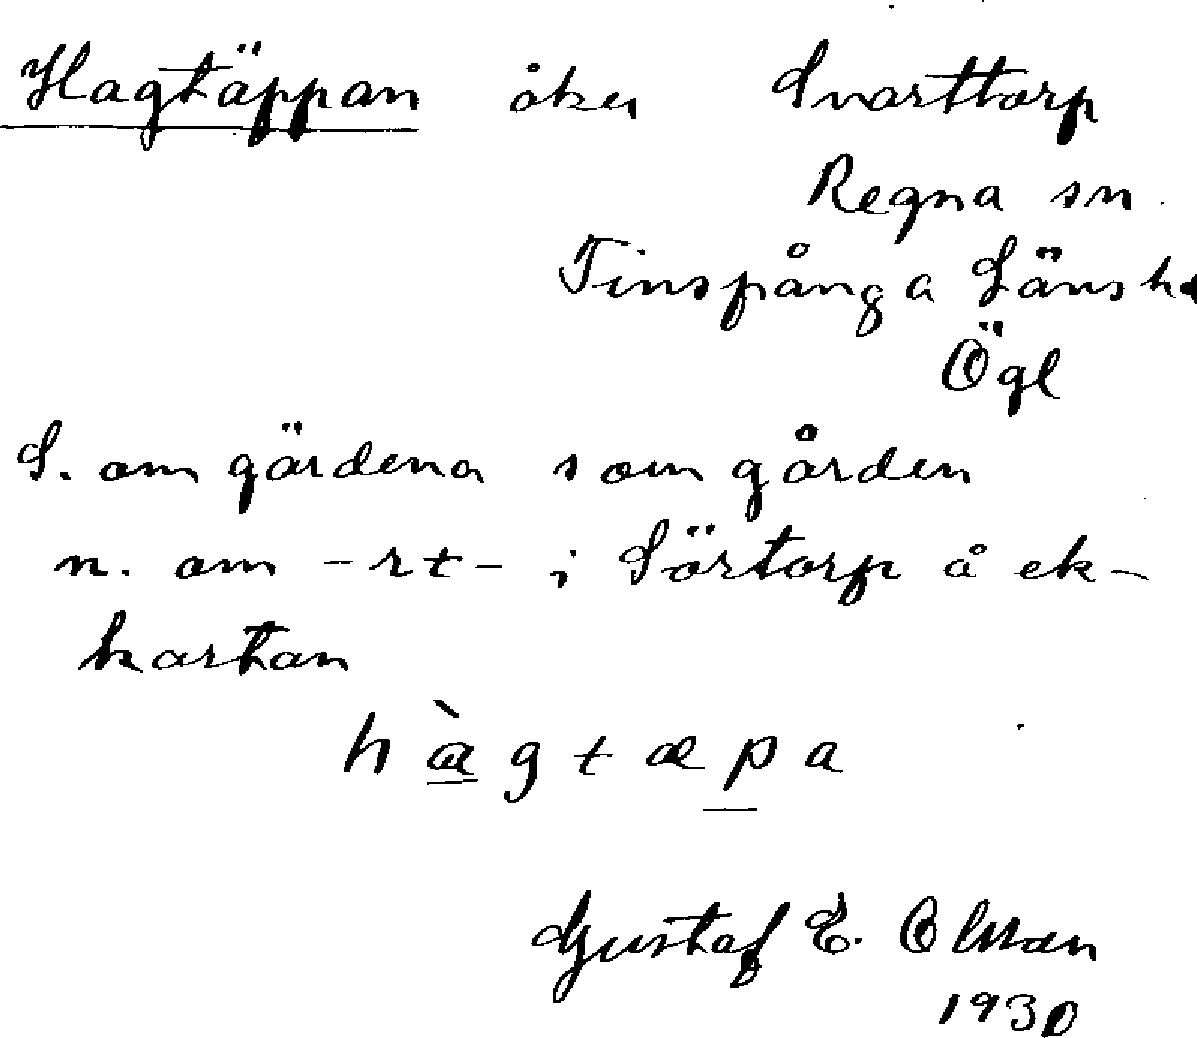 Hagtäppan åker Svarttorp
Regna sn.
Finspånga Länshd
Ögl
S. om gärdena som gården
n. om -rt- i Sörtorp å ek-
kartan
hàgtæpa
Gustaf E. Olsson
1930